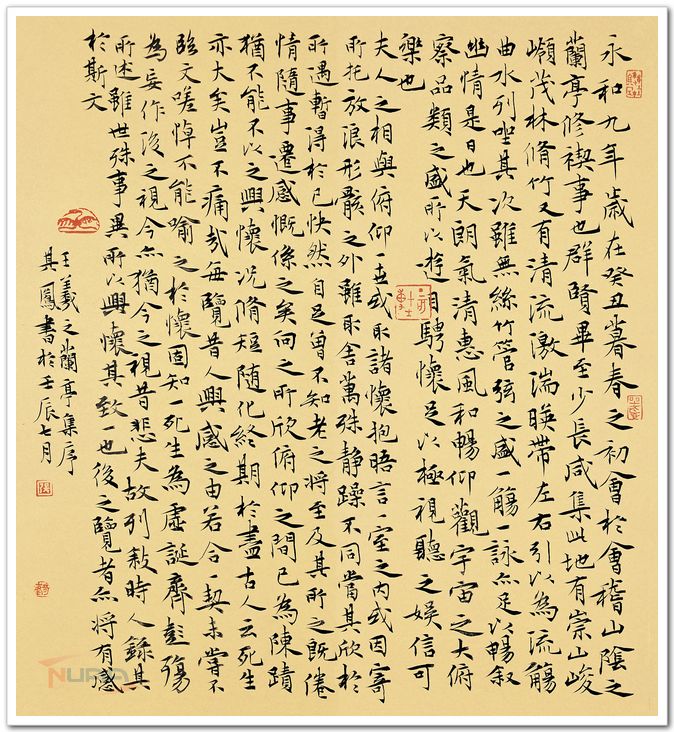 永和九年歲在癸丑暮春之初會於會稽山陰之
蘭亭修禊事也群賢畢至少長咸集此地有崇山峻
嶺茂林脩竹又有清流激湍暎帶左右引以為流觴
曲水列坐其次雖無絲竹管弦之盛一觴一詠亦足以暢叙
幽情是日也天朗氣清惠風和暢仰觀宇宙之大俯
察品類之盛所以遊目騁懷足以極視聽之娛信可
樂也
夫人之相與俯仰一世或取諸懷抱晤言一室之内或因寄
所托放浪形骸之外雖取舍萬殊静躁不同當其欣於
所遇暫得於己快然自足曾不知老之將至及其所之既倦
情隨事遷感慨係之矣向之所欣俯仰之間已為陳蹟
猶不能不以之興懷況脩短隨化終期於盡古人云死生
亦大矣豈不痛哉每覽昔人興感之由若合一契未嘗不
臨文嗟悼不能喻之於懷固知一死生為虛誕齊彭殤
為妄作後之視今亦猶今之視昔悲夫故列敘時人錄其
所述雖世殊事異所以興懷其致一也後之覽者亦將有感
於斯文
王羲之蘭亭集序
其鳳書於壬辰七月